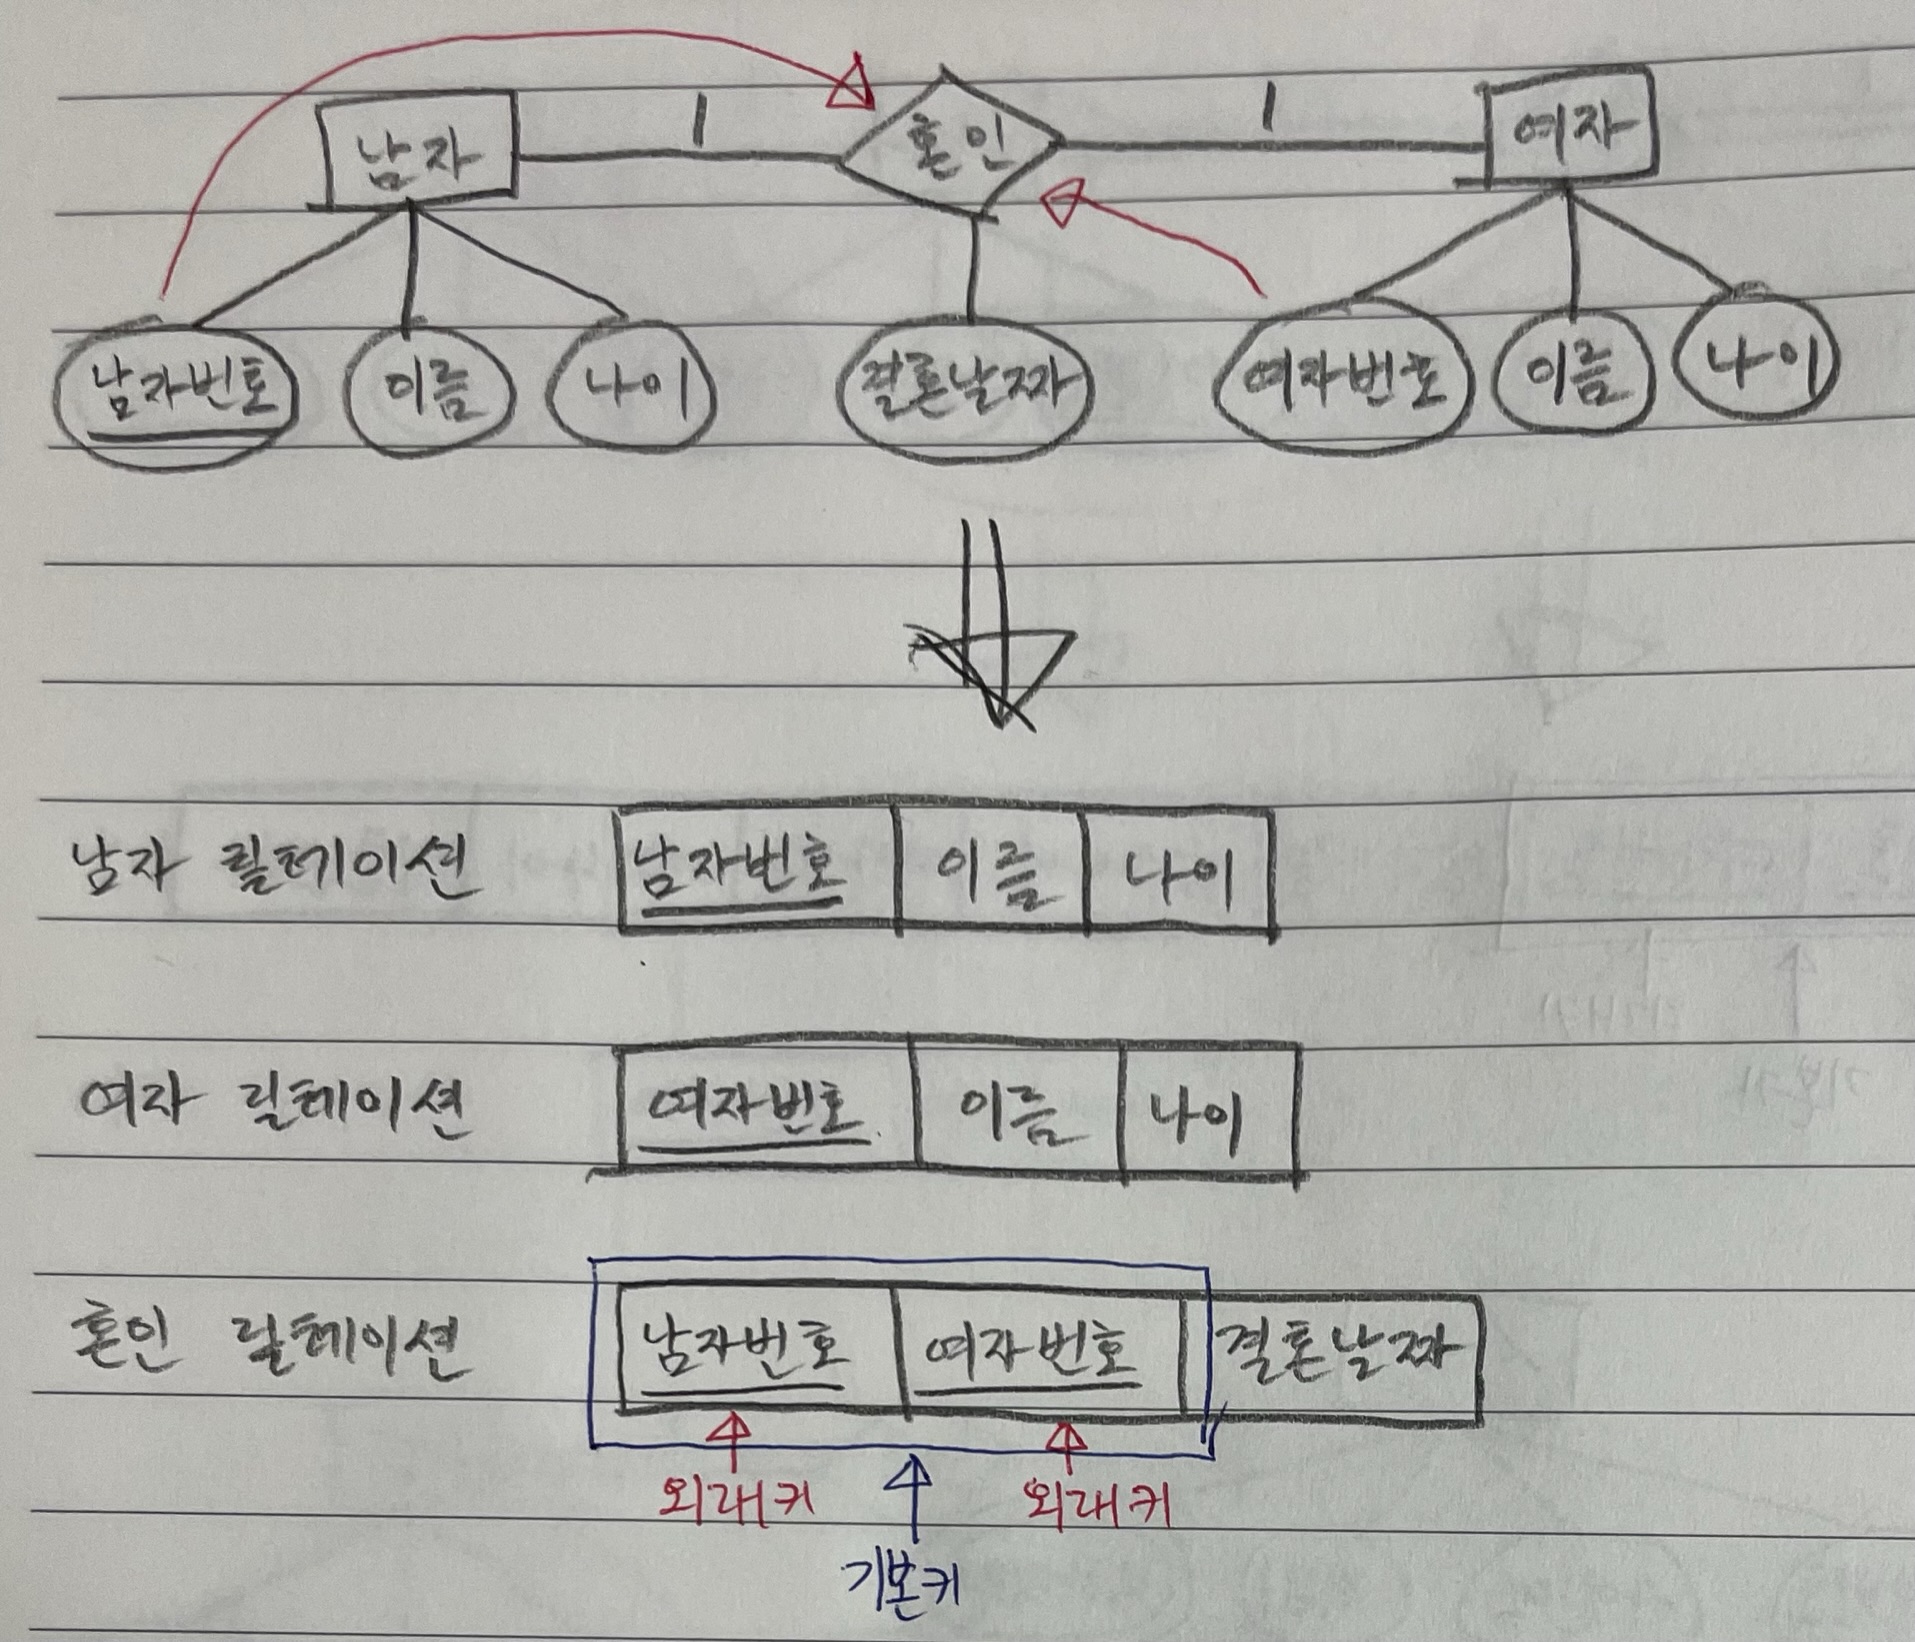 남자 1 혼인 1 여자
남자번호 이름 나이 결혼날짜 여자번호 이름 나이
남자 릴레이션 남자번호 이름 나이
여자 릴레이션 여자번호 이름 나이
혼인 릴레이션 남자번호 여자번호 결혼날짜
외래키 외래키
기본키